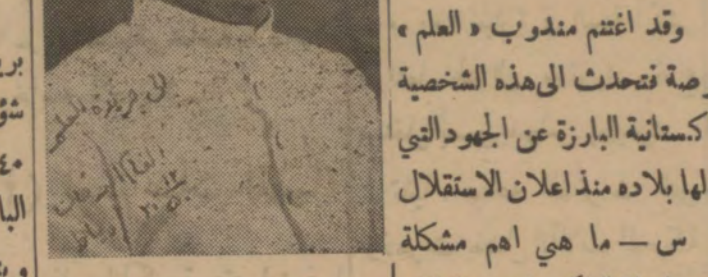 وقد اغتنم مندوب « العلم »
رصة فتحدث الى هذه الشخصية
كستانية البارزة عن الجهود التي
لها بلاده منذ اعلان الاستقلال
س — ما هي اهم مشكلة
الى جريدة العلم
بري
شؤ
٤٠
البا